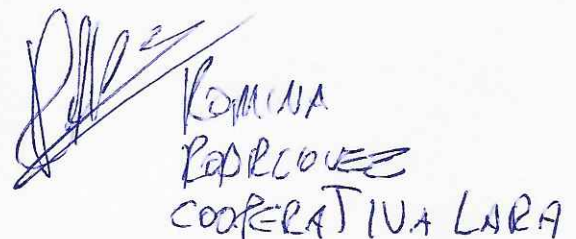 ROMINA
RODRIGUEZ
COOPERATIVA LARA